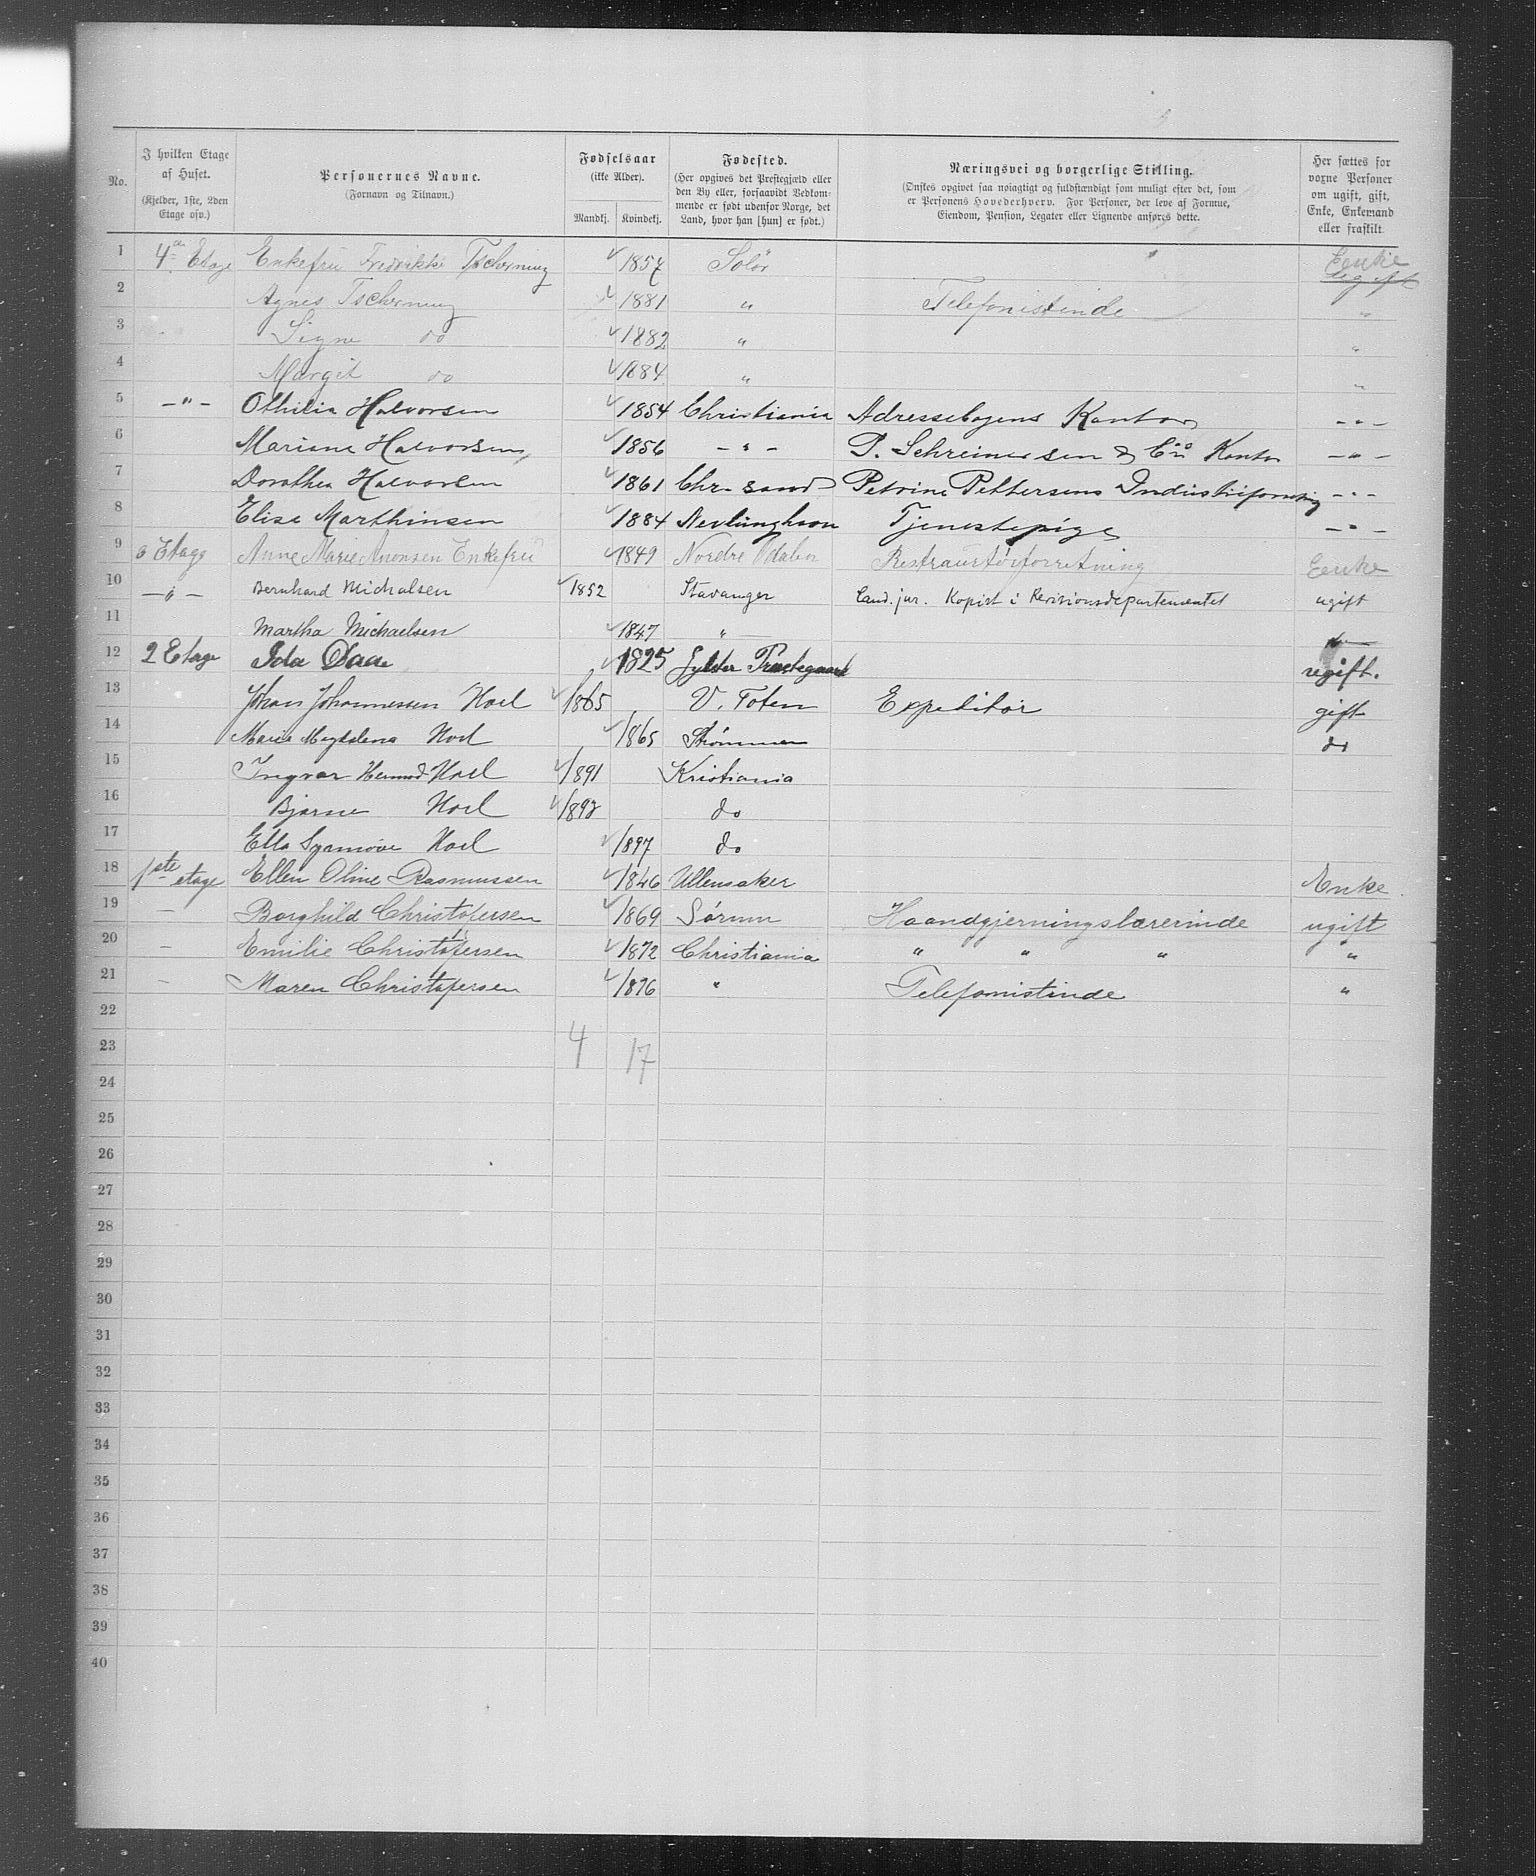 No.
I hvilken Etage af Huset. (Kjelder, 1ste, 2den Etage osv.)
Personernes Navne. (Fornavn og Tilnavn.)
Fødselsaar (ikke Alder). Mandkj. Kvindekj.
Fødested. (Her opgives det Prestegjæld eller den By eller, forsaavidt Vedkommende er født udenfor Norge, det Land, hvor han [hun] er født.)
Næringsvei og borgerlige Stilling. (Ønskes opgivet saa nøiagtigt og fuldstændigt som muligt efter det, som er Personens Hovederhverv. For Personer, der leve af Formue, Eiendom, Pension, Legater eller Lignende anføres dette.
Her sættes for voxne Personer om ugift, gift, Enke, Enkemand eller fraskilt.
1 4de Etage Enkefru Fredrikke Tscherning 1857 Solör Enke ugift
2 Agnes Tscherning 1881 " Telefonistinde "
3 Signe do 1882 " "
4 Margit do 1884 " "
5 -"- Othilia Halvorsen 1854 Christiania Adressebogens Kontor -"-
6 Mariane Halvorsen 1856 -"- P. Schreiner sen & Co Kontor -"-
7 Dorothea Halvorsen 1861 Chr-sand Petrine Pettersens Industriforretning -"-
8 Elise Marthinsen 1884 Nevlunghavn Tjenestepige -"-
9 Etage Anne Marie Enkefru 1849 Nordre Odalen Restraurtörforretning Enke
10 -"- Bernhard Michalsen 1852 Stavanger Cand. jur. Kopist i Revisionsdepartementet ugift
11 Martha Michaelsen 1847 "
12 2 Etage Ida Daae 1825 Prestegaard ugift.
13 Johan Johannessen Hoel 1865 V. Toten Expeditör gift
14 Marie Magdalena Hoel 1865 Strømmen do
15 Ingvar Hoel 1891 Kristiania
16 Bjarne Hoel 1892 do
17 Ella Synnöve Hoel 1897 do
18 1ste etage Ellen Oline Rasmussen 1846 Ullensaker Enke
19 - Borghild Christofersen 1869 Sørum Haandgjerningslærerinde ugift
20 - Emilie Christofersen 1872 Christiania " " " "
21 - Maren Christofersen 1876 " Telefonistinde "
22
23 4 17
24
25
26
27
28
29
30
31
32
33
34
35
36
37
38
39
40